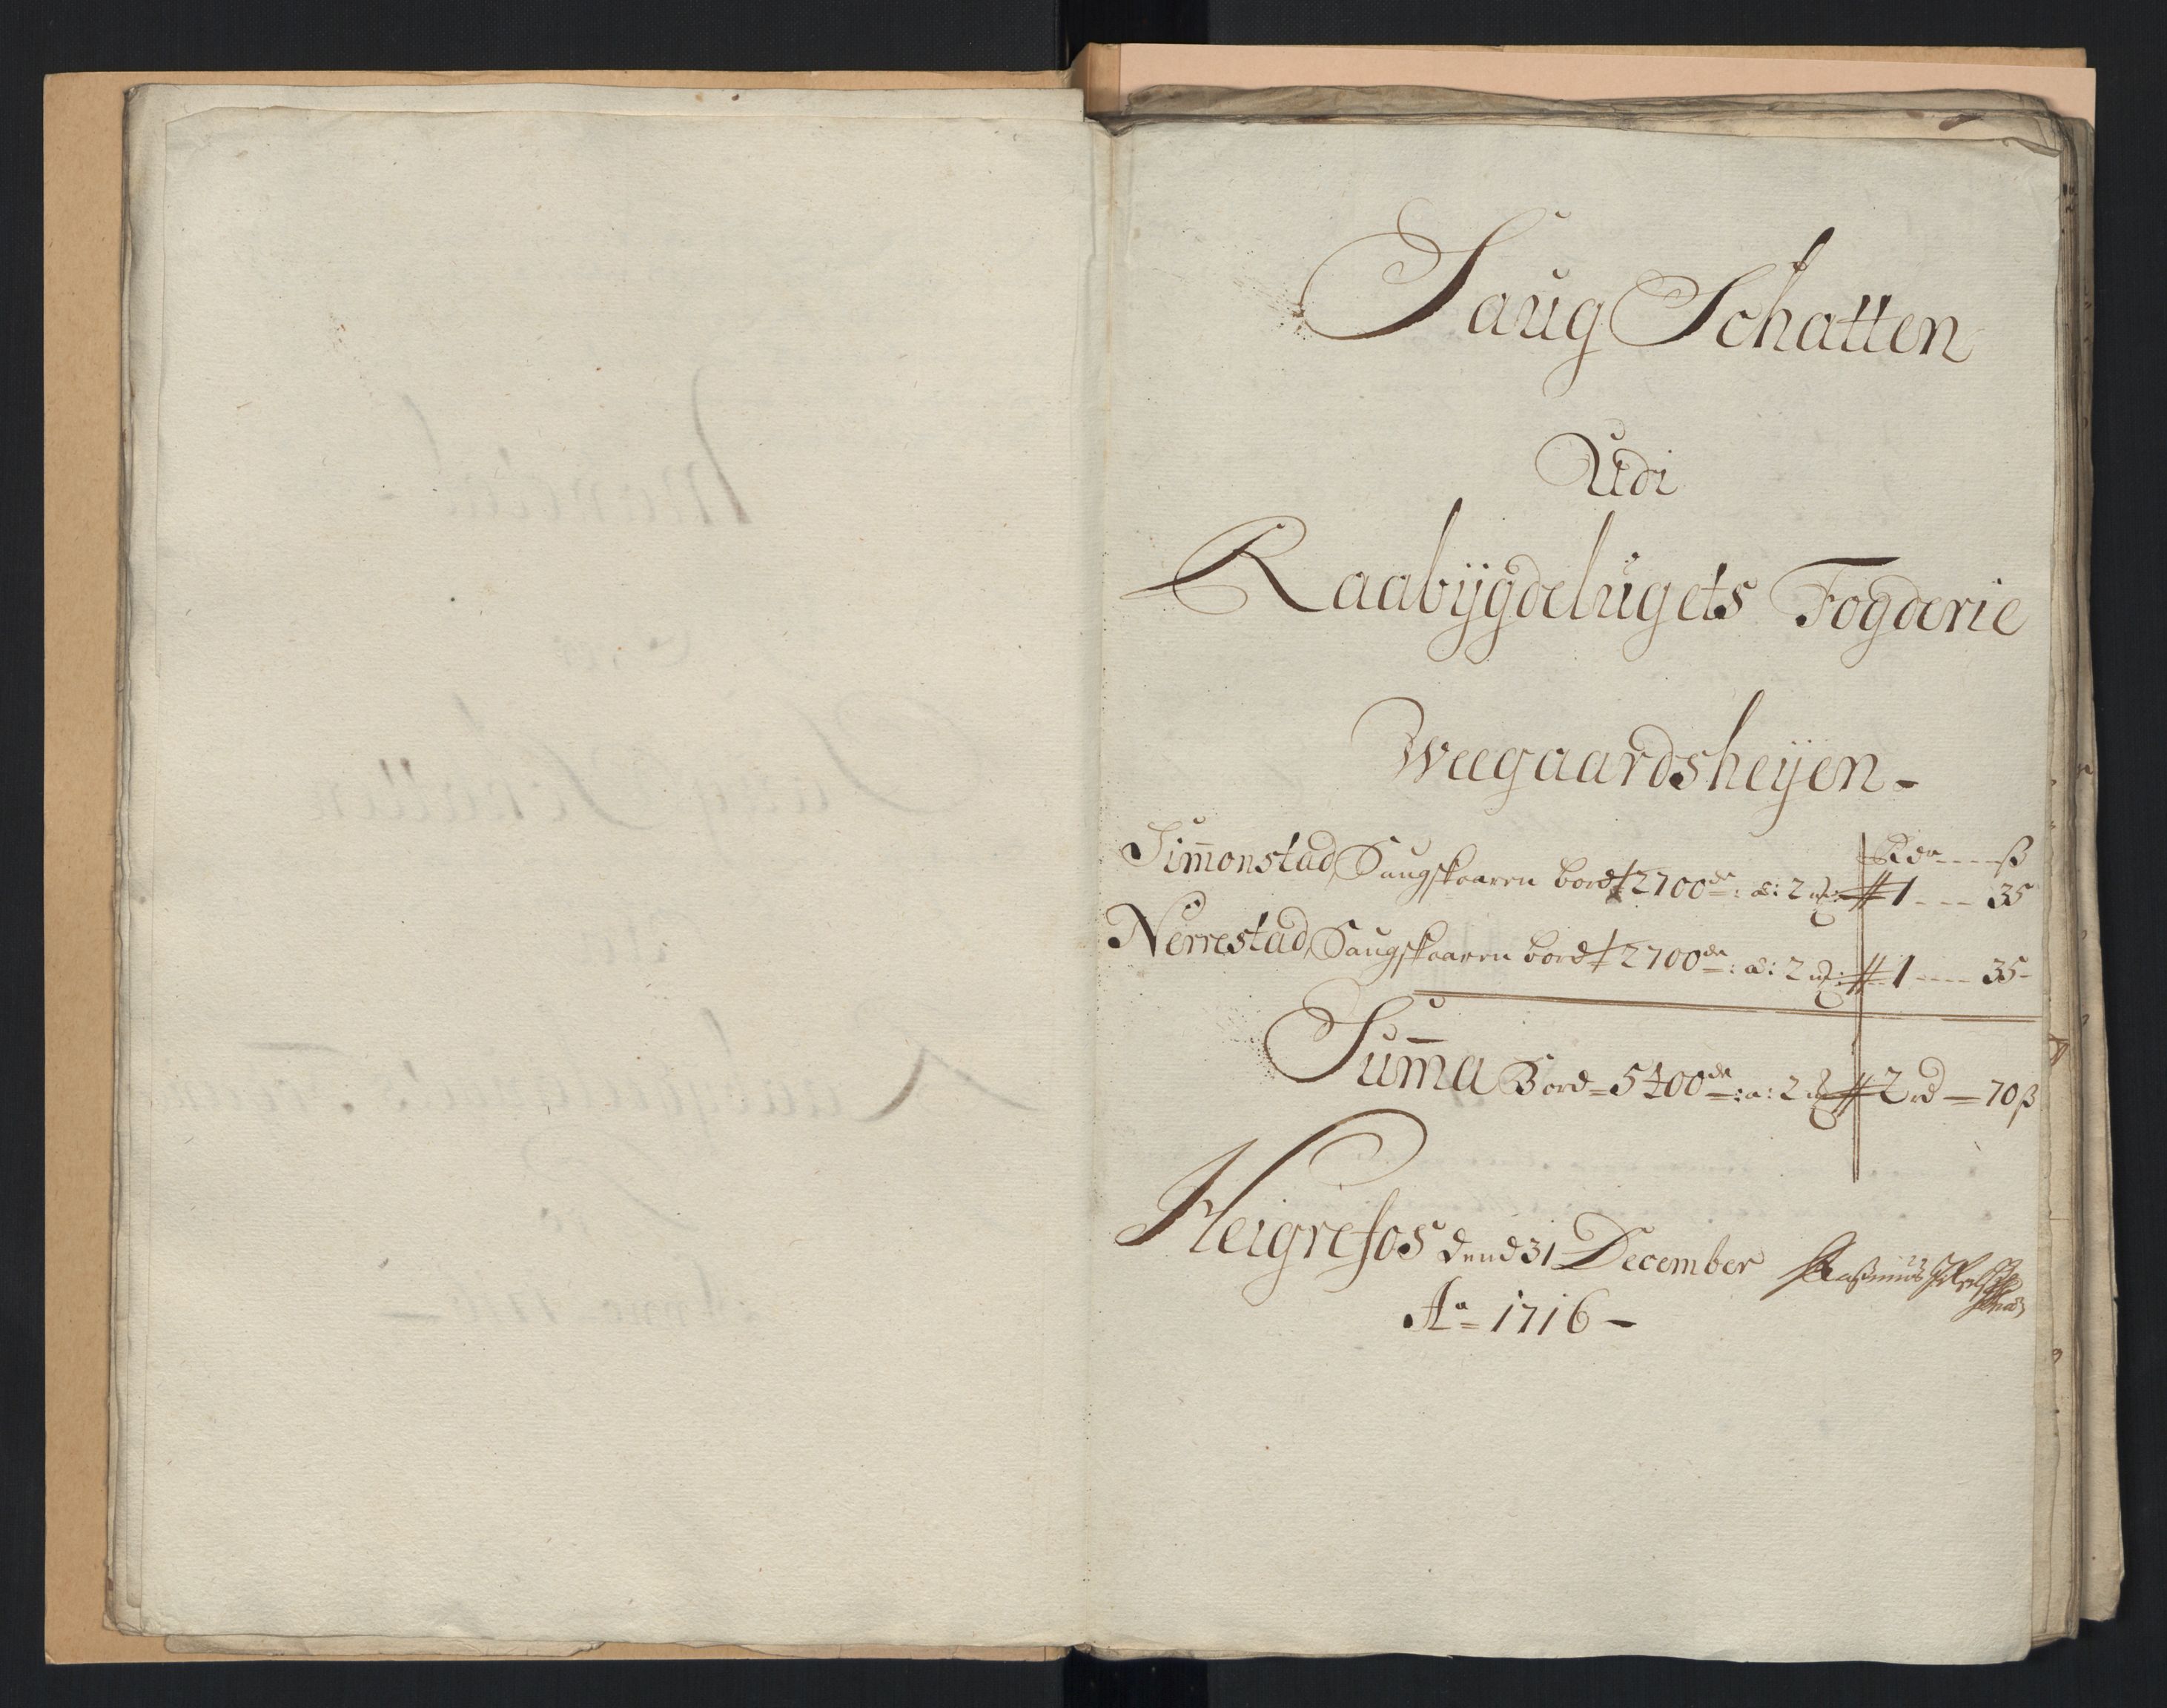 Saug Schatten
Udi
Raabÿgdelugets Fogderie
Weegaardsheÿen -
Rdr --- ß
Sim̄onstad Saugskaaren bord 2700de : a: 2 1 --- 35
Nerrestad Saugskaaren bord 2700de : a: 2 1 ---- 35-
Sum̄a Bord = 5400de : a: 2 2 rd = 70 ß
Heigrefos dend 31 December
Ao = 1716 -